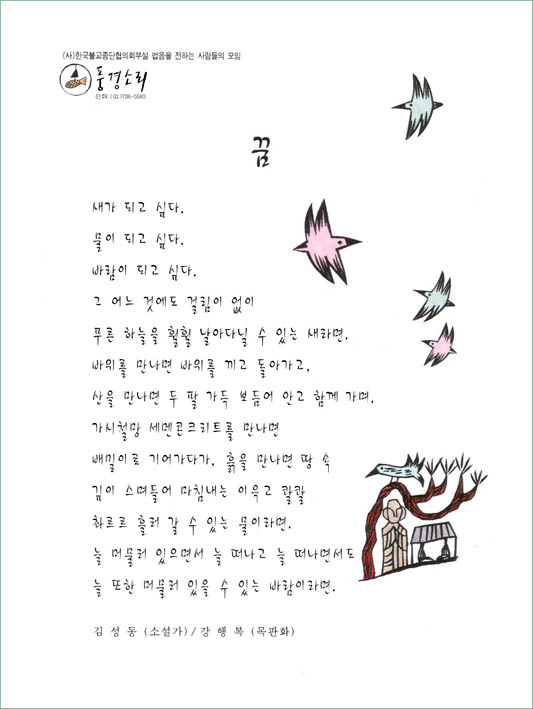 (사)한국불교종단협의회부설 법음을 전하는 사람들의 모임
풍경소리
전화:(02)736-5583
꿈
새가 되고 싶다.
물이 되고 싶다.
바람이 되고 싶다.
그 어느 것에도 걸림이 없이
푸른 하늘을 훨훨 날아다닐 수 있는 새라면.
바위를 만나면 바위를 끼고 돌아가고,
산을 만나면 두 팔 가득 보듬어 안고 함께 가며,
가시철망 세멘콘크리트를 만나면
배밀이로 기어가다가, 흙을 만나면 땅 속
깊이 스며들어 마침내는 이윽고 콸콸
화르르 흘러 갈 수 있는 물이라면.
늘 머물러 있으면서 늘 떠나고 늘 떠나면서도
늘 또한 머물러 있을 수 있는 바람이라면.
김 성 동 (소설가) / 강 행 복 (목판화)